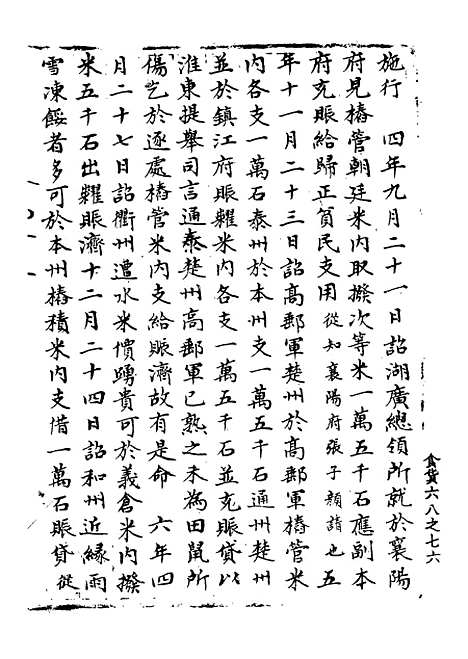 施行　四年九月二十一日詔湖廣總領所就於襄陽
府見樁管朝廷米内取撥次等米一萬五千石應副本
府充賑給歸正貧民支用從知襄陽府張子顏請也五
年十一月二十三日詔高郵軍楚州於高郵軍樁管米
内各支一萬石泰州於本州支一萬五千石通州楚州
並於鎮江府賑糶米内各支一萬五千石並充賑貸以
淮東提舉司言通泰楚州高郵軍已熟之禾為田鼠所
傷乞於逐處樁管米内支給賑濟故有是命　六年四
月二十七日詔衢州遭水米價踴貴可於義倉米内撥
米五千石出糶賑濟十二月二十四日詔和州近緣雨
雪凍餒者多可於本州樁積米内支借一萬石賑貸從
食貨六八之七六